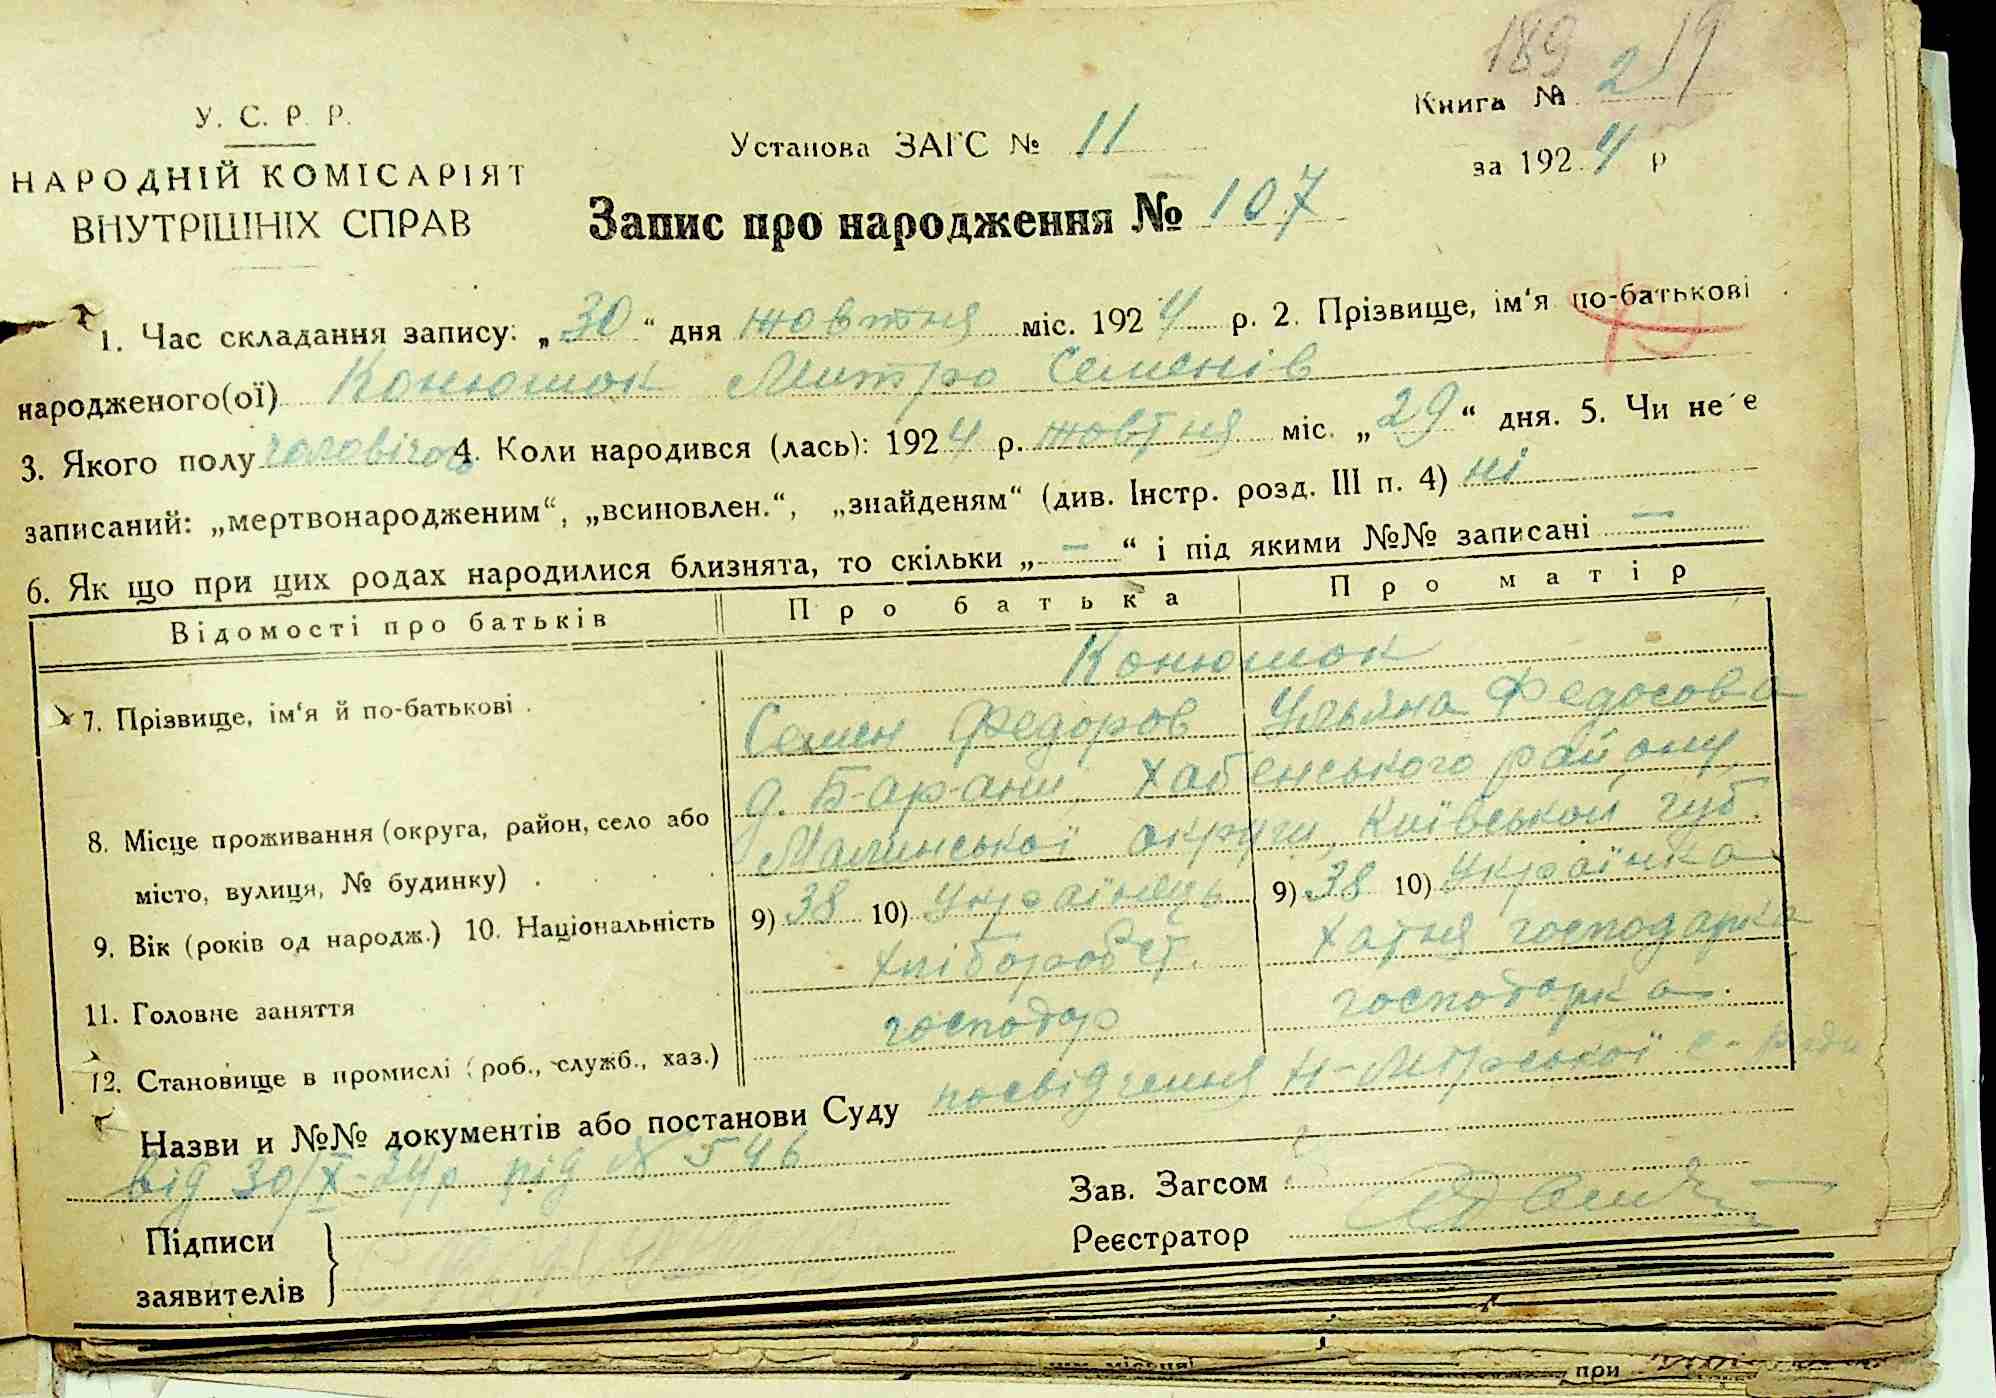 189 219
У. С. Р. Р.
НАРОДНІЙ КОМІСАРІЯТ
ВНУТРІШНІХ СПРАВ
Установа ЗАГС № 11
Книга № 2
за 1924 р
Запис про народження № 107
1. Час складання запису: „30“ дня жовтня міс. 1924 р. 2. Прізвище, ім‘я по-батькові
народженого(ої) Конюшок Митро Семенів
3. Якого полу чоловічого 4. Коли народився (лась): 1924 р. жовтня міс. „29“ дня. 5. Чи не є
записаний: „мертвонародженим“, „всиновлен.“, „знайденям“ (див. Інстр. розд. III п. 4) ні
6. Як що при цих родах народилися близнята, то скільки „—“ і під якими №№ записані —
Відомості про батьків Про батька Про матір
Конюшок
7. Прізвище, ім‘я й по-батькові . Семен Федоров Ульяна Федосова
д. Барани, Хабенського району,
8. Місце проживання (округа, район, село або Малинської округи, Київської губ.
місто, вулиця, № будинку) .
9. Вік (років од народж.) 10. Національність 9) 38 10) Українець 9) 38 10) Українка
11. Головне заняття хліборобст. хатня господарка
12. Становище в промислі (роб., служб., хаз.) господар господарка.
Назви и №№ документів або постанови Суду посвідчення с-ради
від 30/X-24р під № 546
Зав. Загсом
Підписи
Реєстратор
заявителів
при